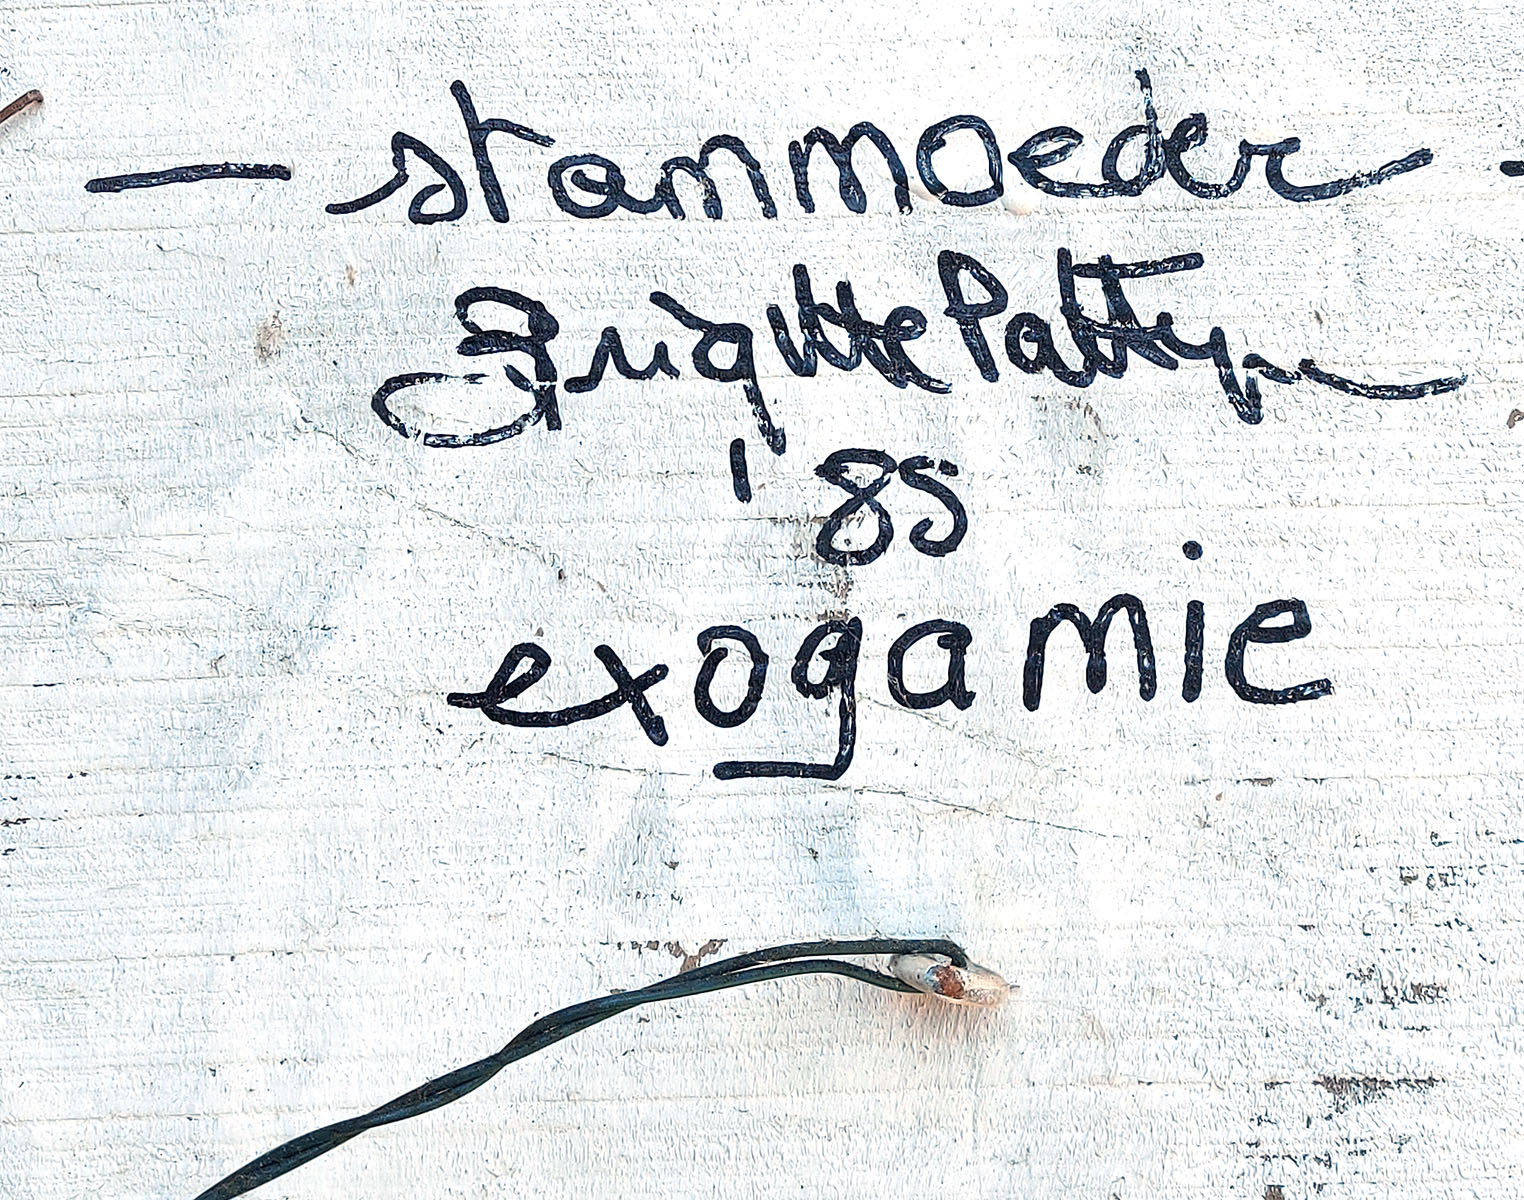 — stammoeder -
Brigitte Pattyn
'85
exogamie